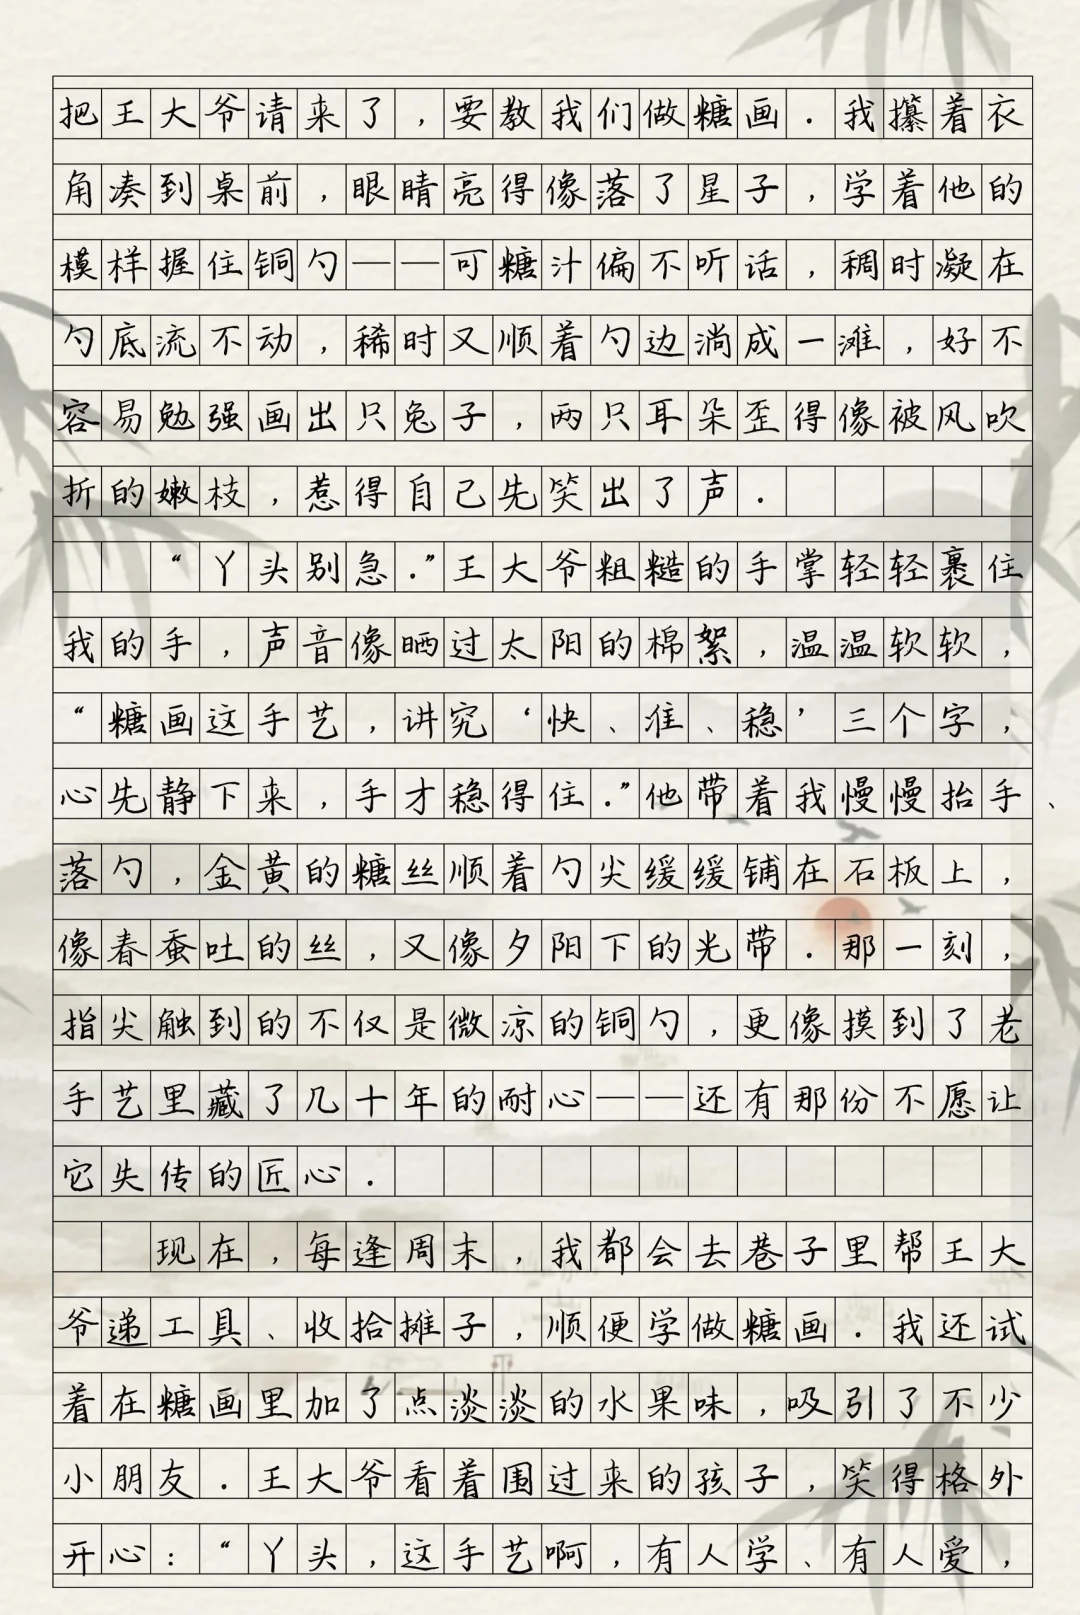 把王大爷请来了，要教我们做糖画．我攥着衣
角凑到桌前，眼睛亮得像落了星子，学着他的
模样握住铜勺——可糖汁偏不听话，稠时凝在
勺底流不动，稀时又顺着勺边淌成一滩，好不
容易勉强画出只兔子，两只耳朵歪得像被风吹
折的嫩枝，惹得自己先笑出了声．
“丫头别急．”王大爷粗糙的手掌轻轻裹住
我的手，声音像晒过太阳的棉絮，温温软软，
“糖画这手艺，讲究‘快、准、稳’三个字，
心先静下来，手才稳得住．”他带着我慢慢抬手、
落勺，金黄的糖丝顺着勺尖缓缓铺在石板上，
像春蚕吐的丝，又像夕阳下的光带．那一刻，
指尖触到的不仅是微凉的铜勺，更像摸到了老
手艺里藏了几十年的耐心——还有那份不愿让
它失传的匠心．
现在，每逢周末，我都会去巷子里帮王大
爷递工具、收拾摊子，顺便学做糖画．我还试
着在糖画里加了点淡淡的水果味，吸引了不少
小朋友．王大爷看着围过来的孩子，笑得格外
开心：“丫头，这手艺啊，有人学、有人爱，